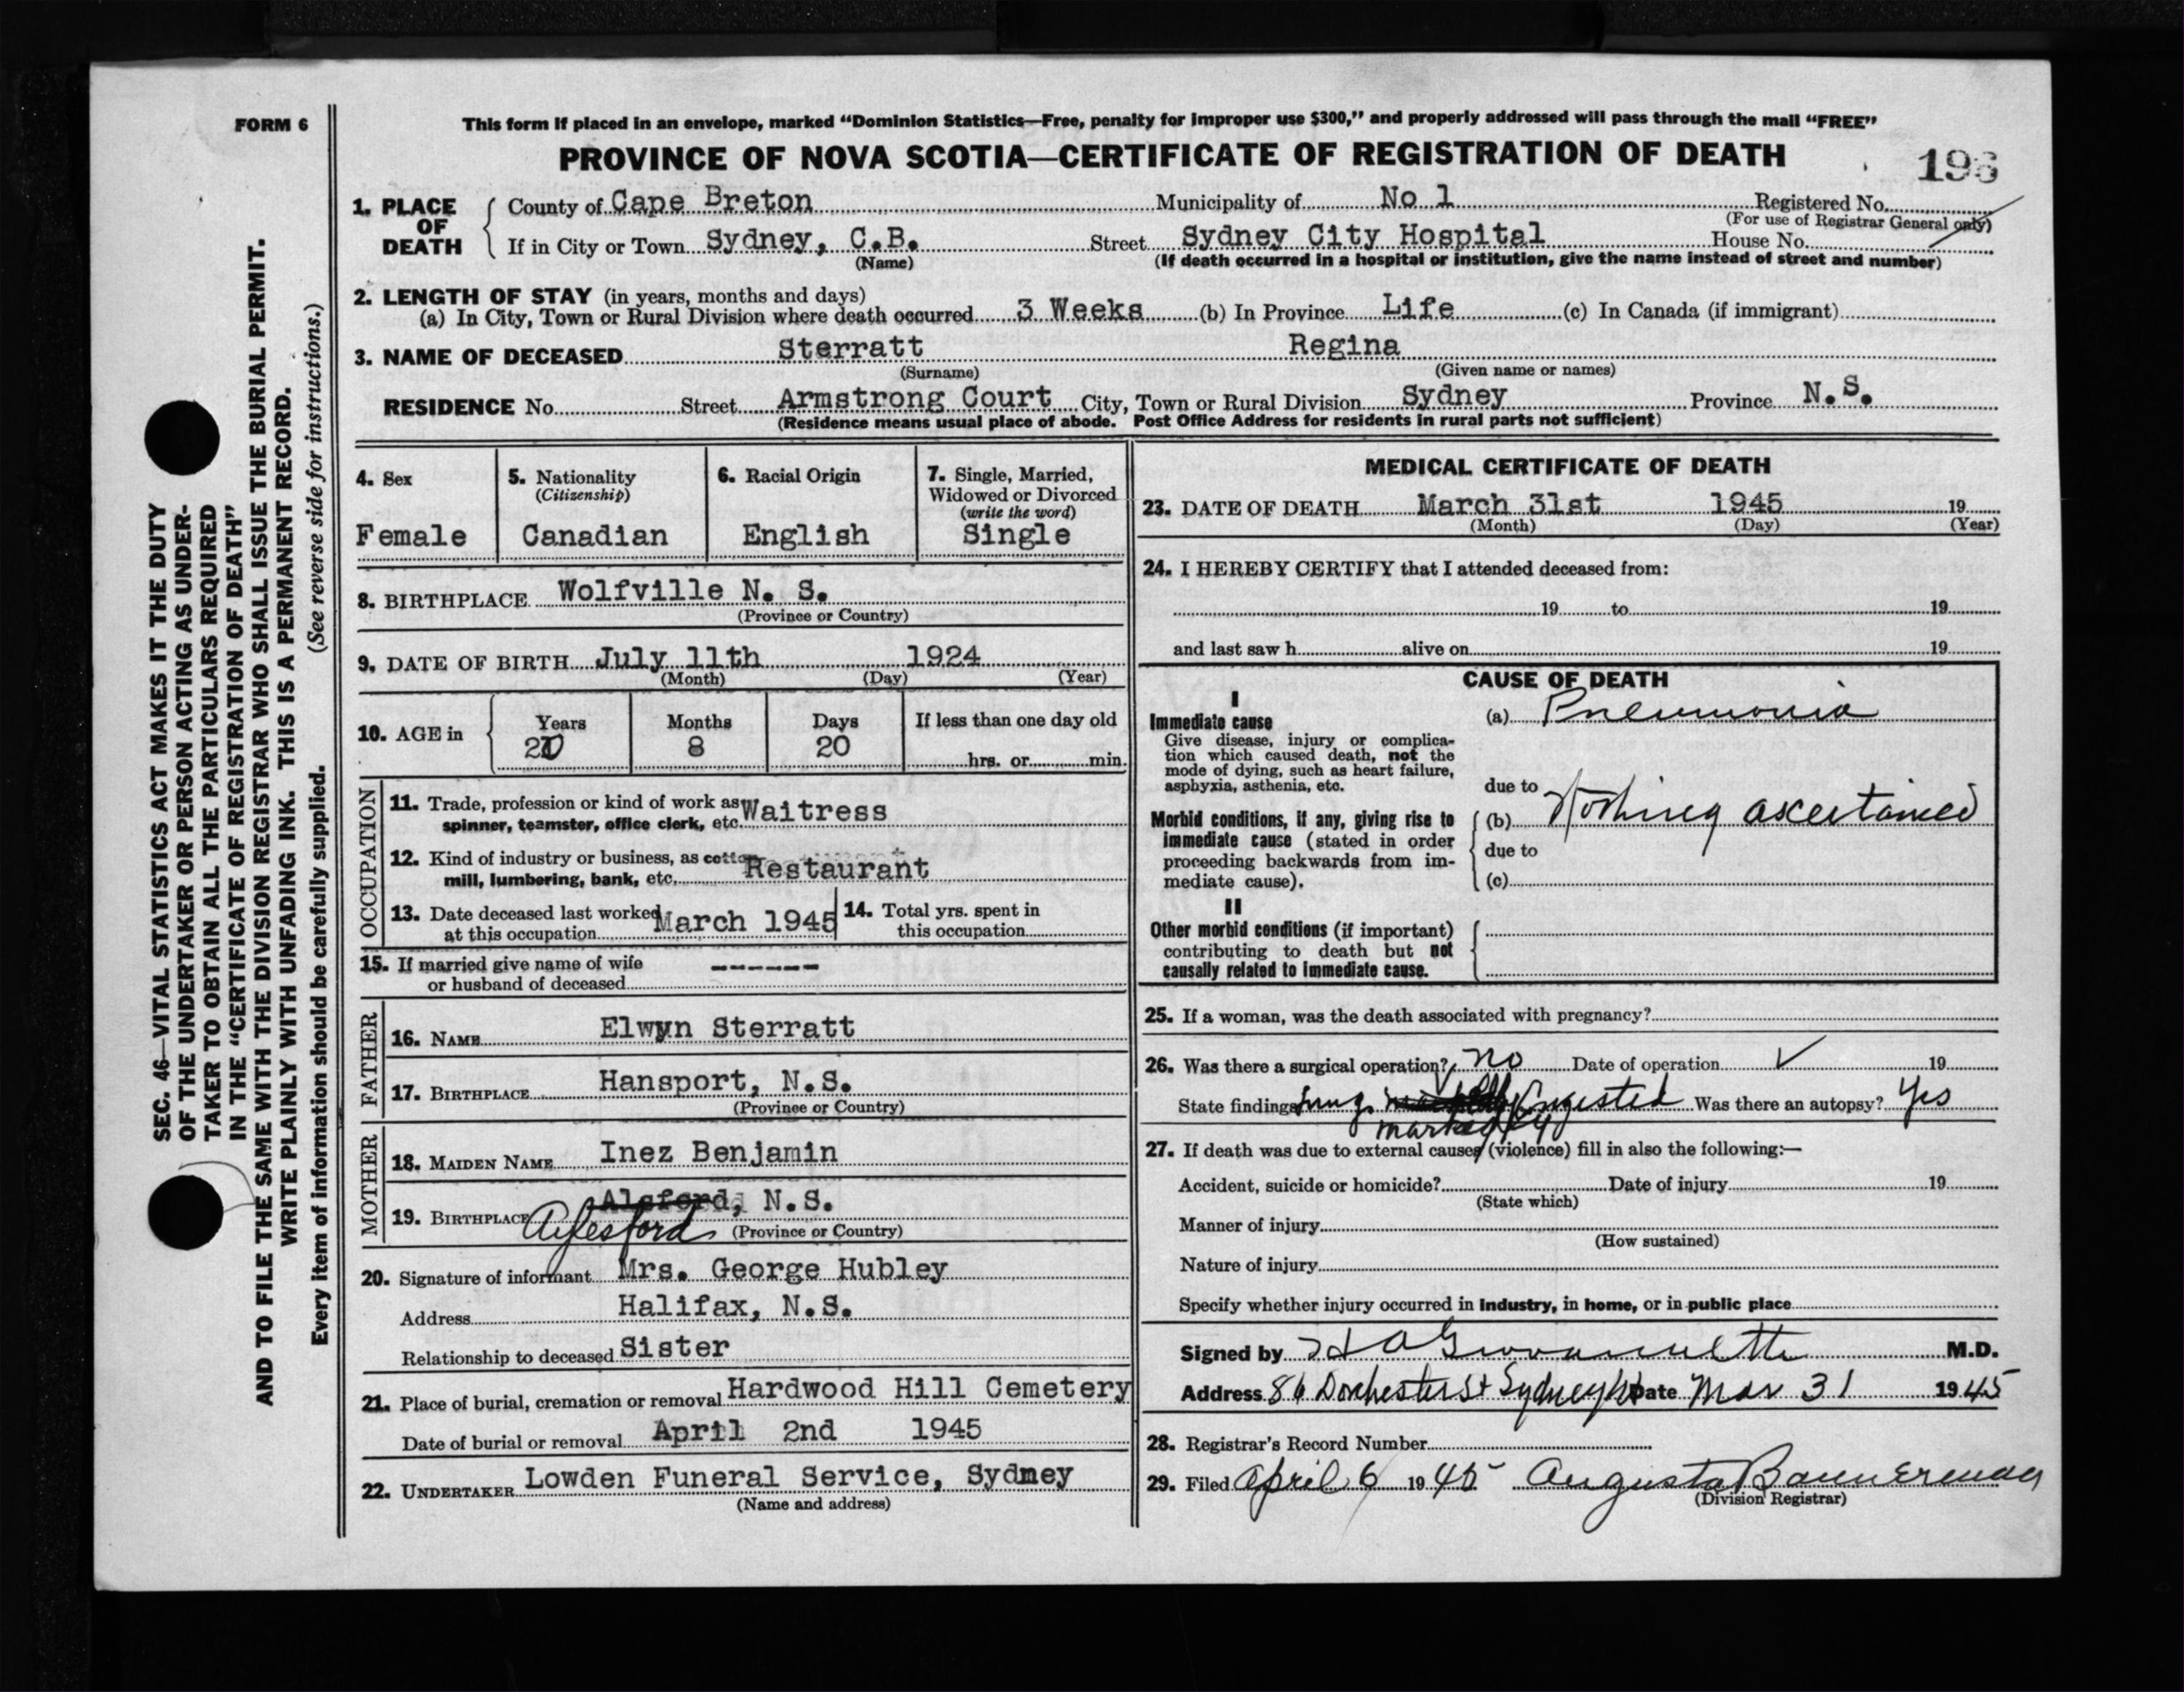 FORM 6
This form if placed in an envelope, marked “Dominion Statistics—Free, penalty for improper use $300,” and properly addressed will pass through the mail “FREE”
PROVINCE OF NOVA SCOTIA—CERTIFICATE OF REGISTRATION OF DEATH
196
1. PLACE OF DEATH
County of Cape Breton Municipality of No 1 Registered No.
(For use of Registrar General only)
If in City or Town Sydney, C.B. Street Sydney City Hospital House No.
(Name) (If death occurred in a hospital or institution, give the name instead of street and number)
2. LENGTH OF STAY (in years, months and days)
(a) In City, Town or Rural Division where death occurred 3 Weeks (b) In Province Life (c) In Canada (if immigrant)
3. NAME OF DECEASED Sterratt Regina
(Surname) (Given name or names)
RESIDENCE No. Street Armstrong Court City, Town or Rural Division Sydney Province N.S.
(Residence means usual place of abode. Post Office Address for residents in rural parts not sufficient)
4. Sex
Female
5. Nationality
(Citizenship)
Canadian
6. Racial Origin
English
7. Single, Married,
Widowed or Divorced
(write the word)
Single
8. BIRTHPLACE Wolfville N. S.
(Province or Country)
9. DATE OF BIRTH July 11th 1924
(Month) (Day) (Year)
10. AGE in
Years Months Days If less than one day old
20 8 20 hrs. or min.
OCCUPATION
11. Trade, profession or kind of work as Waitress
spinner, teamster, office clerk, etc.
12. Kind of industry or business, as cotton
mill, lumbering, bank, etc. Restaurant
13. Date deceased last worked
at this occupation March 1945
14. Total yrs. spent in
this occupation
15. If married give name of wife ------
or husband of deceased
FATHER
16. NAME Elwyn Sterratt
17. BIRTHPLACE Hansport, N.S.
(Province or Country)
MOTHER
18. MAIDEN NAME Inez Benjamin
19. BIRTHPLACE Alsford, N.S.
Aylesford (Province or Country)
20. Signature of informant Mrs. George Hubley
Address Halifax, N.S.
Relationship to deceased Sister
21. Place of burial, cremation or removal Hardwood Hill Cemetery
Date of burial or removal April 2nd 1945
22. UNDERTAKER Lowden Funeral Service, Sydney
(Name and address)
MEDICAL CERTIFICATE OF DEATH
23. DATE OF DEATH March 31st 1945 19
(Month) (Day) (Year)
24. I HEREBY CERTIFY that I attended deceased from:
19 to 19
and last saw h alive on 19
CAUSE OF DEATH
I
Immediate cause
Give disease, injury or complica-
tion which caused death, not the
mode of dying, such as heart failure,
asphyxia, asthenia, etc.
(a) Pneumonia
due to
Morbid conditions, if any, giving rise to
immediate cause (stated in order
proceeding backwards from im-
mediate cause).
(b) Nothing ascertained
due to
(c)
II
Other morbid conditions (if important)
contributing to death but not
causally related to immediate cause.
25. If a woman, was the death associated with pregnancy?
26. Was there a surgical operation? no Date of operation ✓ 19
State findings Lungs Congested Was there an autopsy? Yes
markedly
27. If death was due to external causes (violence) fill in also the following:—
Accident, suicide or homicide? Date of injury 19
(State which)
Manner of injury
(How sustained)
Nature of injury
Specify whether injury occurred in industry, in home, or in public place
Signed by M.D.
Address 86 Dorchester St Sydney NS Date Mar 31 1945
28. Registrar's Record Number
29. Filed April 6 1945 Augusta
(Division Registrar)
SEC. 46—VITAL STATISTICS ACT MAKES IT THE DUTY
OF THE UNDERTAKER OR PERSON ACTING AS UNDER-
TAKER TO OBTAIN ALL THE PARTICULARS REQUIRED
IN THE “CERTIFICATE OF REGISTRATION OF DEATH”
AND TO FILE THE SAME WITH THE DIVISION REGISTRAR WHO SHALL ISSUE THE BURIAL PERMIT.
WRITE PLAINLY WITH UNFADING INK. THIS IS A PERMANENT RECORD.
Every item of information should be carefully supplied. (See reverse side for instructions.)